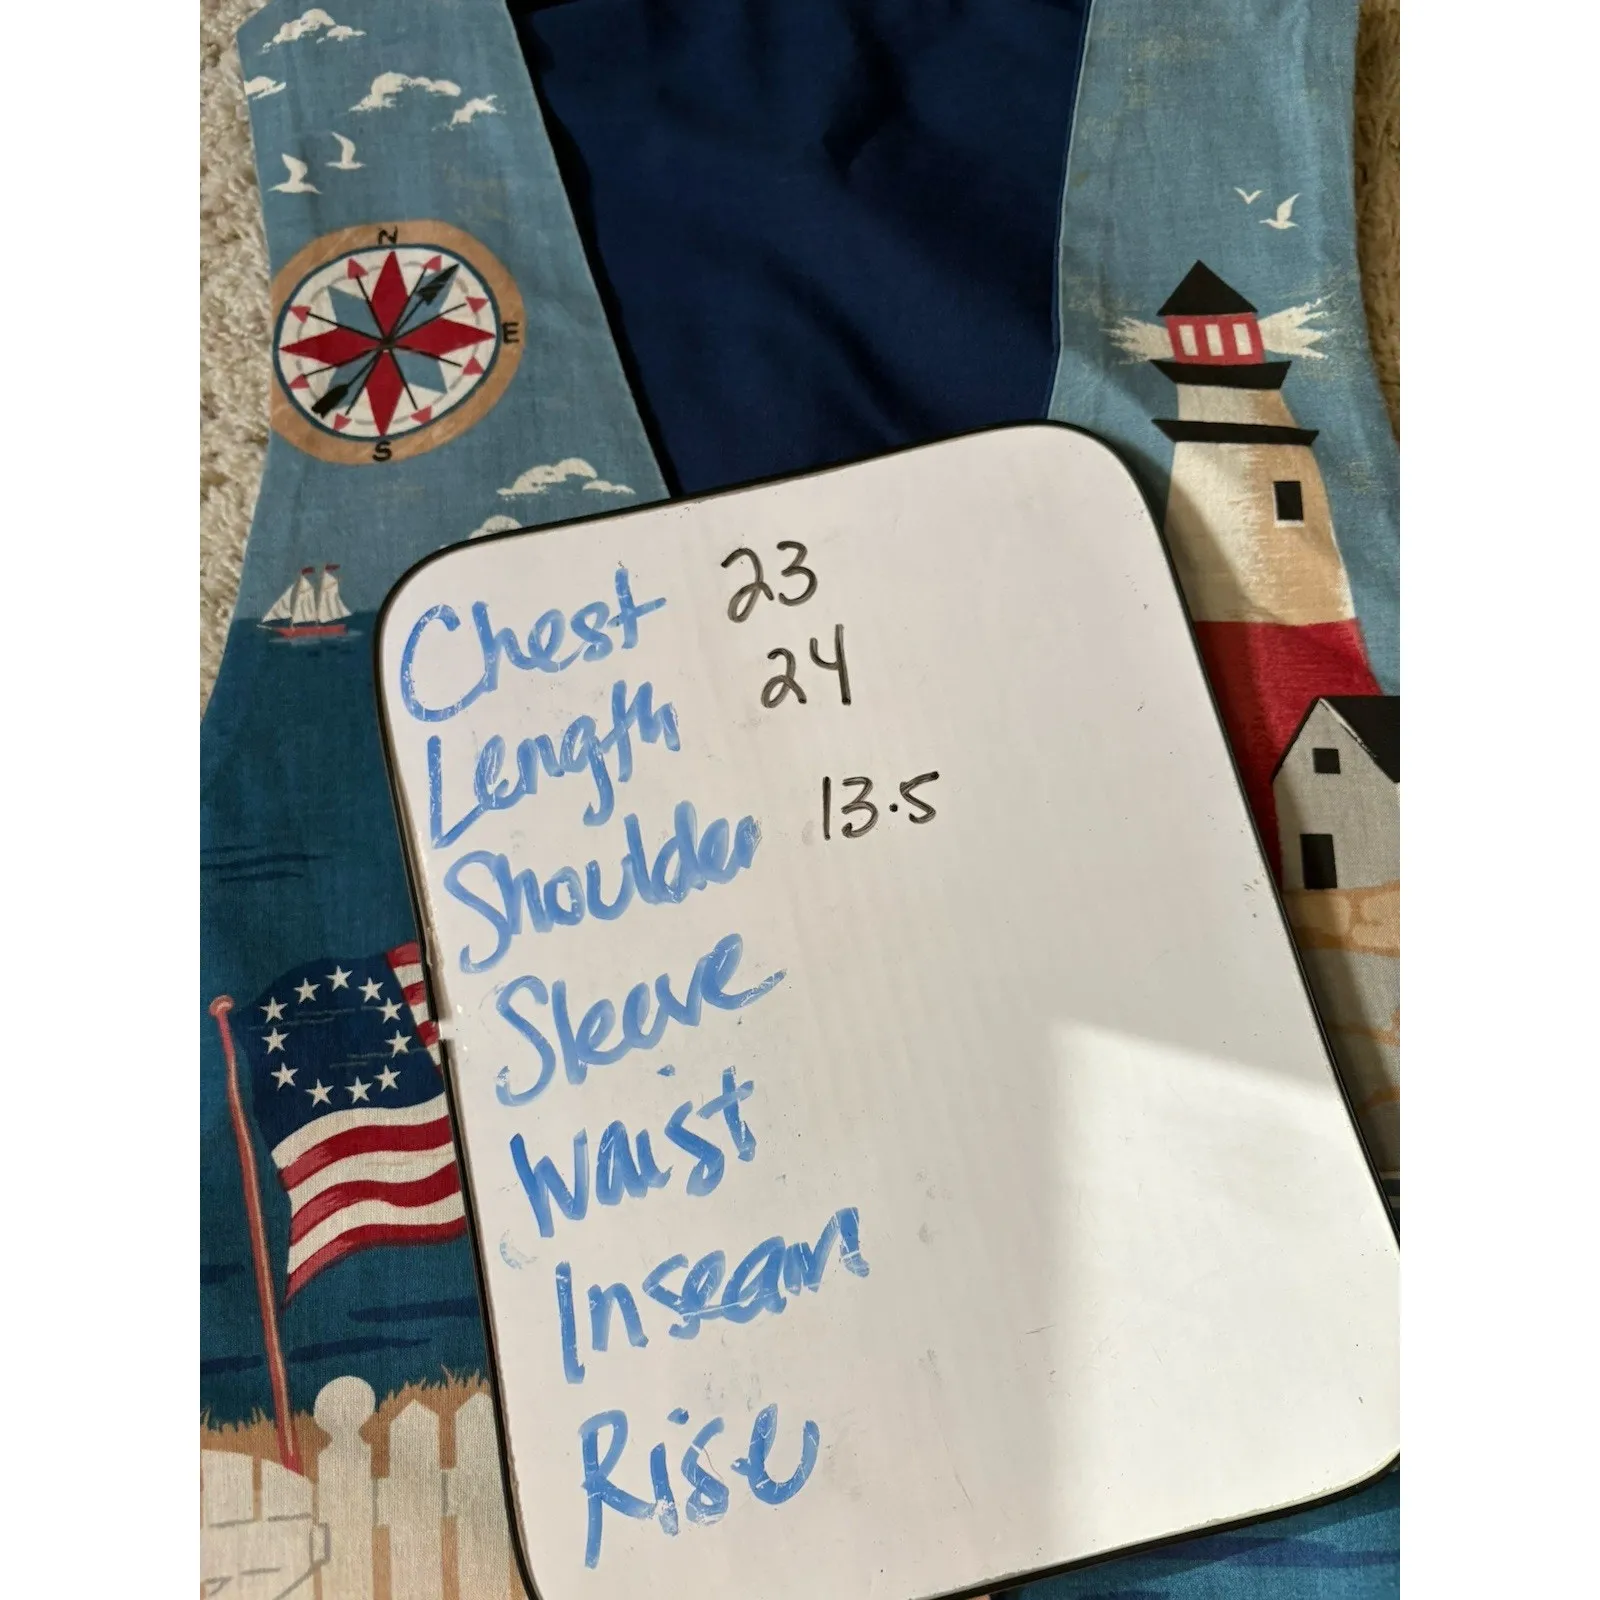 N
E
S
Chest 23
Length 24
Shoulder 13.5
Sleeve
Waist
Inseam
Rise